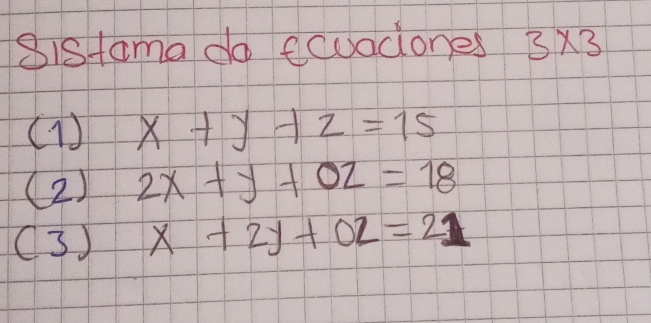 Sistama do Ecuaciones 3x3
(1) x + y + z = 15
(2) 2x + y + 0z = 18
(3) x + 2y + 0z = 21